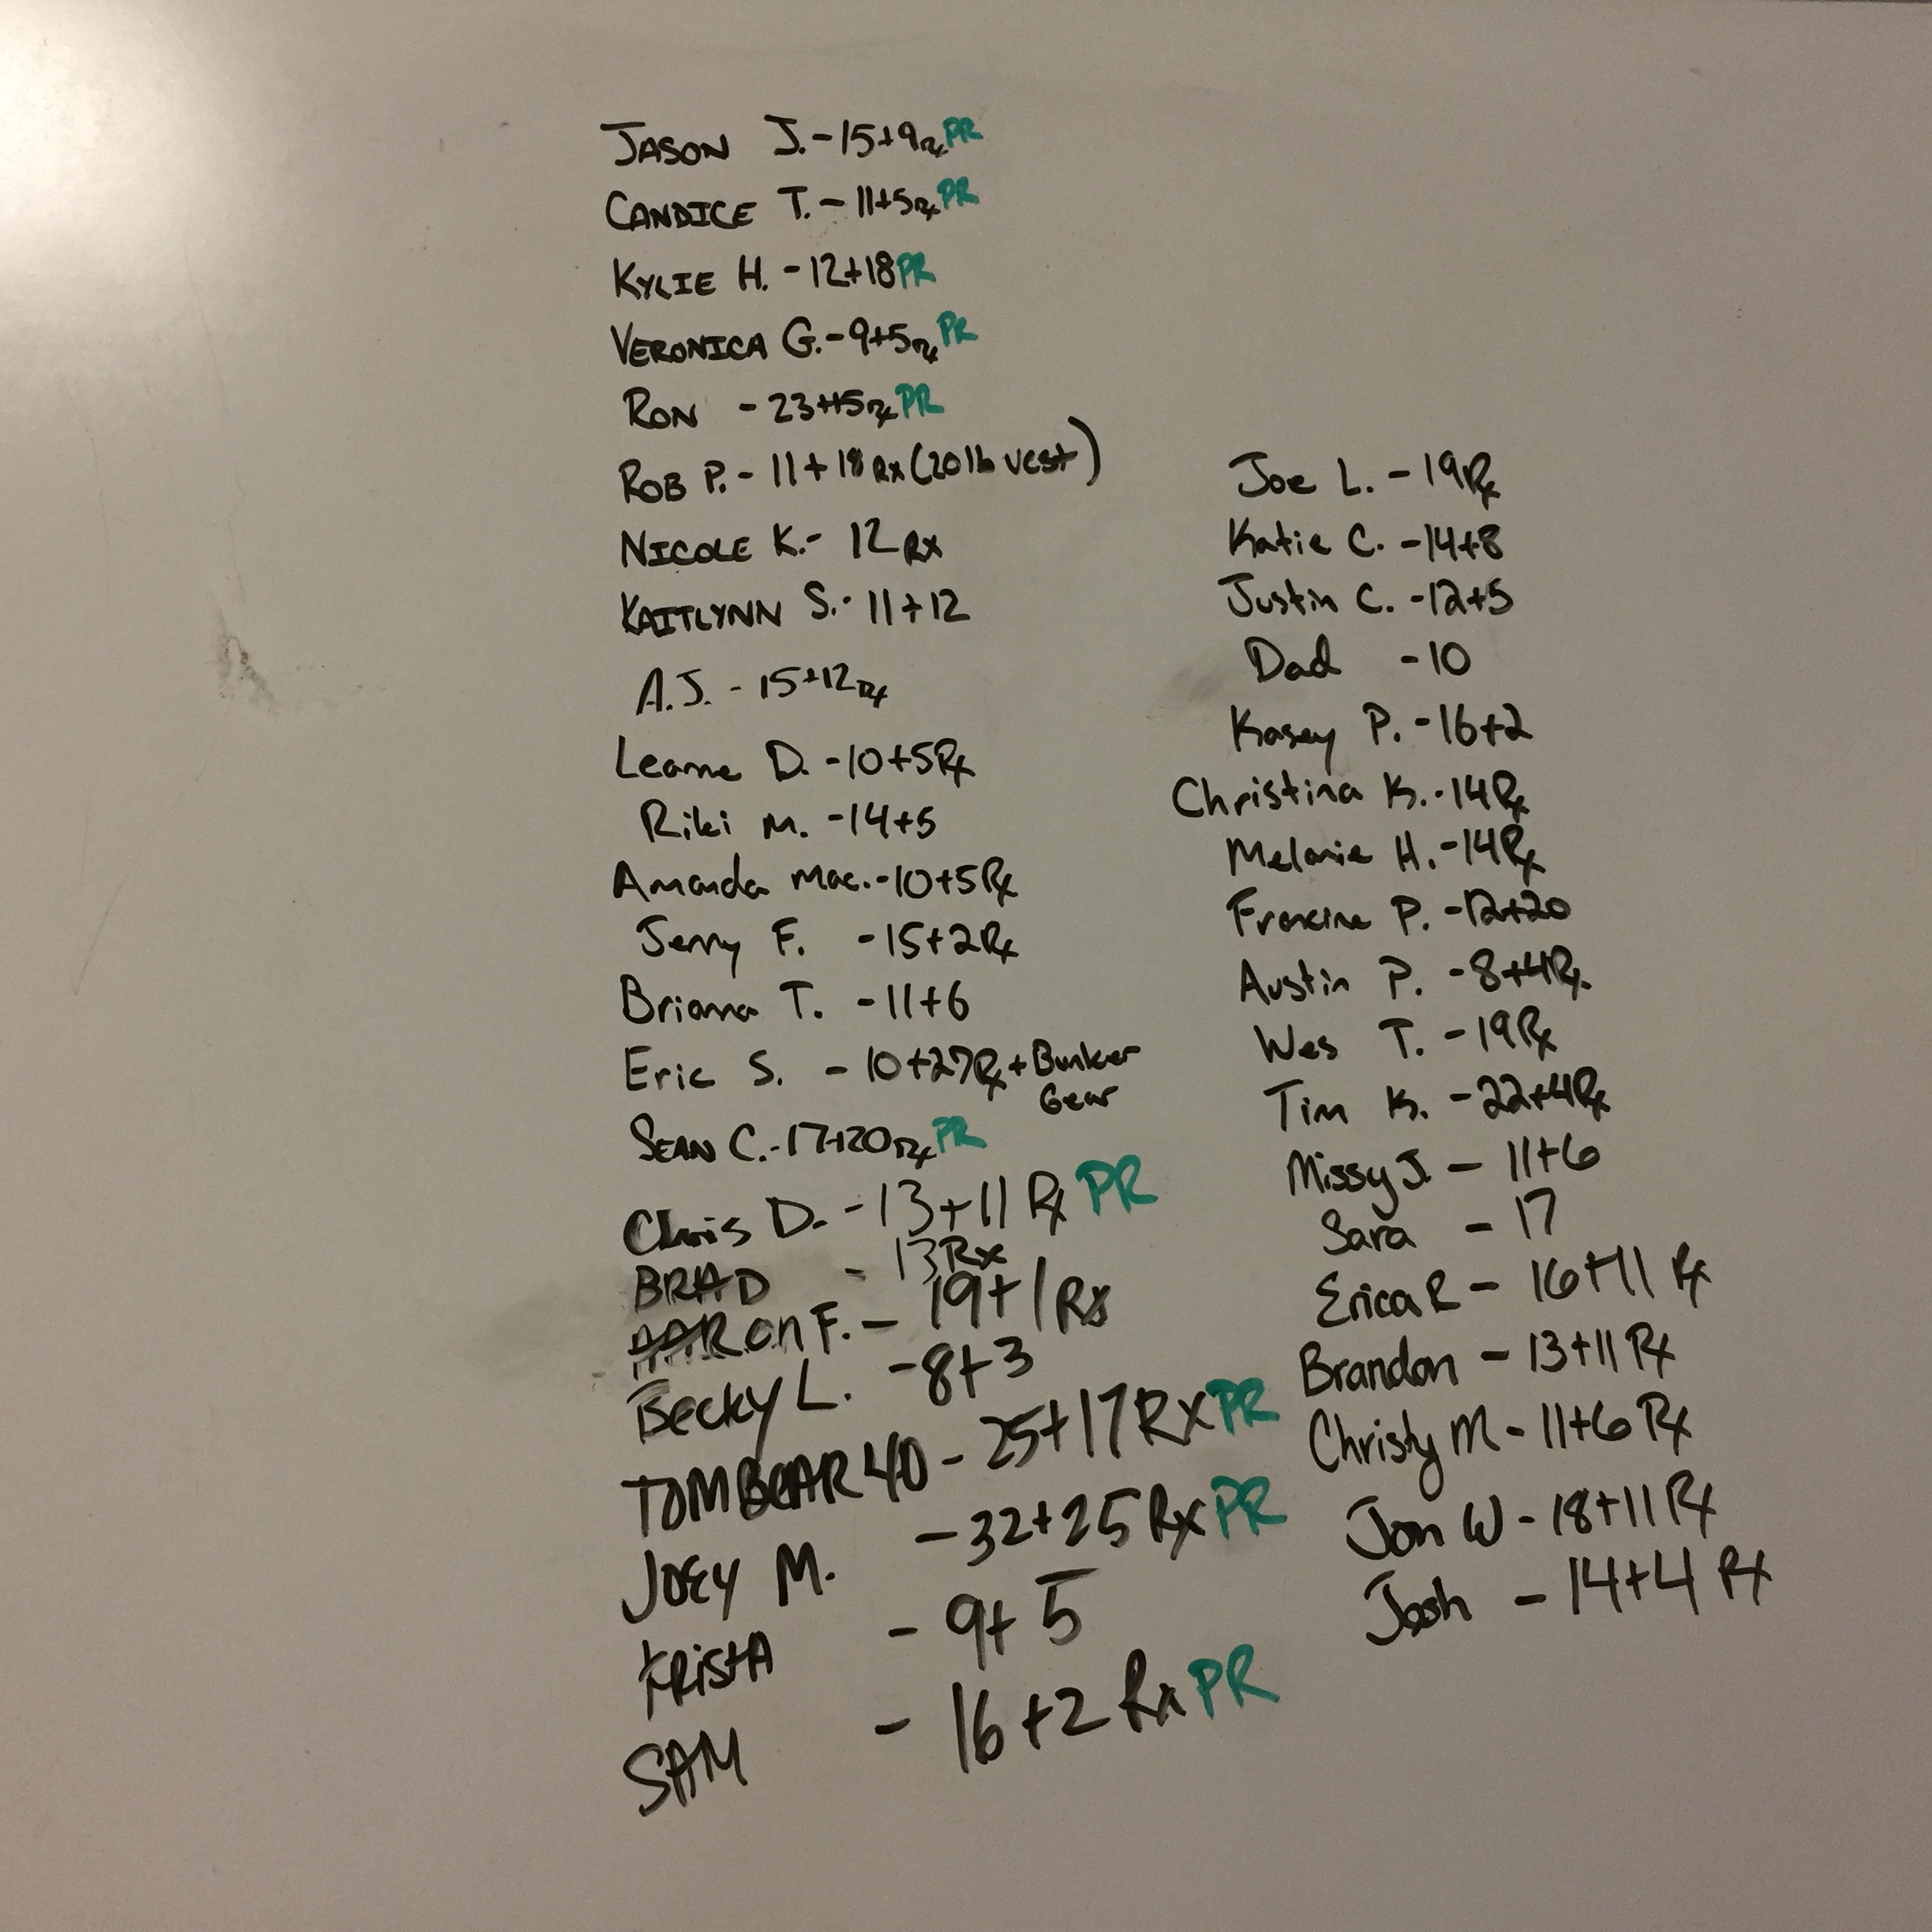 JASON J. - 15+9 Rx PR
CANDICE T. - 11+5 Rx PR
KYLIE H. - 12+18 PR
VERONICA G. - 9+5 Rx PR
RON - 23+15 Rx PR
ROB P. - 11+18 Rx (20 lb vest)
NICOLE K. - 12 Rx
KAITLYNN S. - 11+12
A.J. - 15+12 Rx
Leanne D. - 10+5 Rx
Riki M. - 14+5
Amanda Mac. - 10+5 Rx
Jenny F. - 15+2 Rx
Brianna T. - 11+6
Eric S. - 10+27 Rx + Bunker
Gear
SEAN C. - 17+20 Rx PR
Chris D. - 13+11 Rx PR
BRAD - 13 Rx
AARON F. - 19+1 Rx
Becky L. - 8+3
TOMBEAR40 - 25+17 Rx PR
JOEY M. - 32+25 Rx PR
KRISTA - 9+5
SAM - 16+2 Rx PR
Joe L. - 19 Rx
Katie C. - 14+8
Justin C. - 12+5
Dad - 10
Kasey P. - 16+2
Christina K. - 14 Rx
Melanie H. - 14 Rx
Francine P. - 12+20
Austin P. - 8+4 Rx
Wes T. - 19 Rx
Tim K. - 22+4 Rx
Missy J. - 11+6
Sara - 17
Erica R - 16+11 Rx
Brandon - 13+11 Rx
Christy M - 11+6 Rx
Jon W - 18+11 Rx
Josh - 14+4 Rx